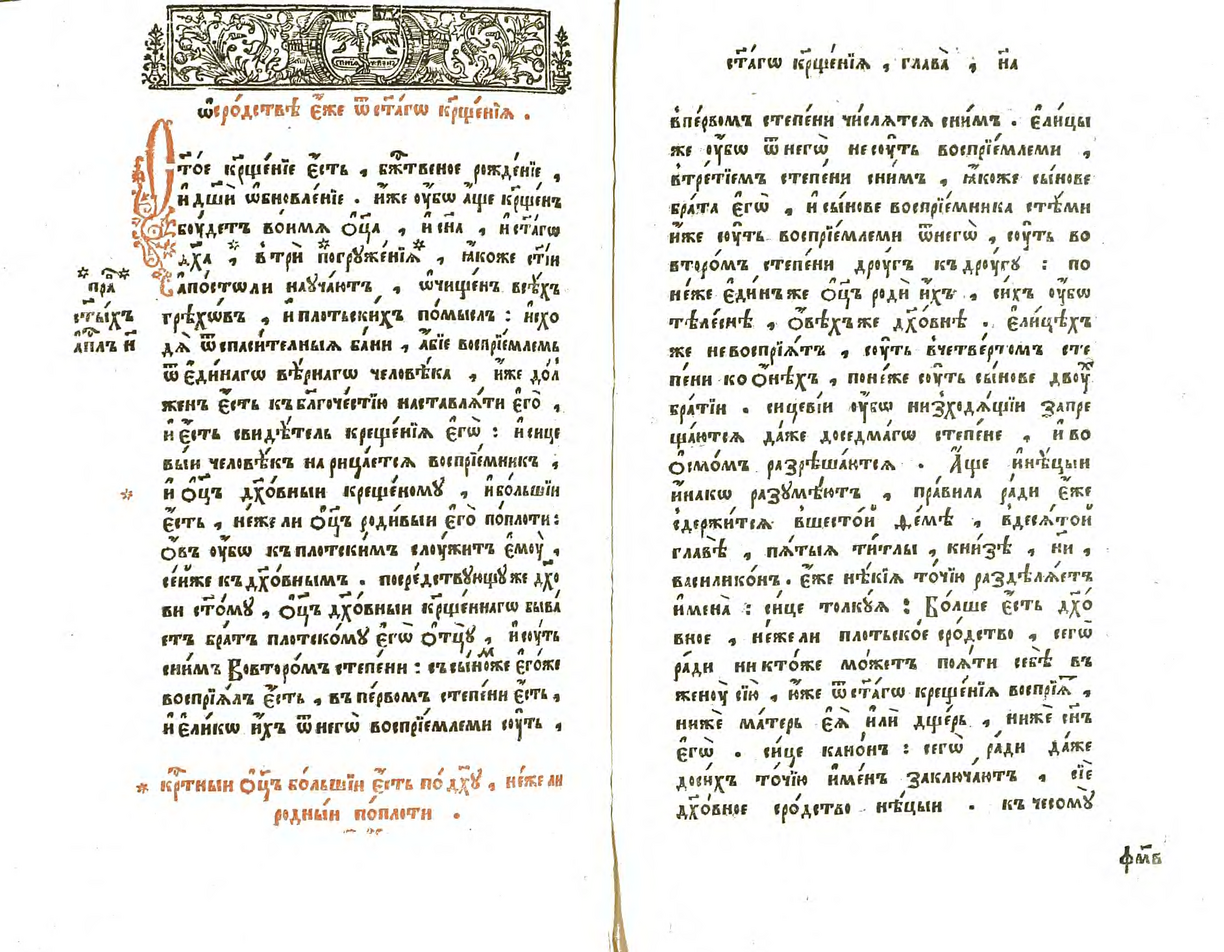 ѡ҆сро́дствѣ є҆́же ѿ ст҃а́гѡ кр҃ще́нїѧ .
Ст҃о́е кр҃ще́нїе є҆́сть , бж҃твеное рожде́нїе ,
и҆ дш҃и ѡ҆бновле́нїе . и҆́же ᲂу҆́бѡ а҆́ще кр҃ще́нъ
бꙋ́детъ во и҆́мѧ ѻ҆ц҃а , и҆ сн҃а , и҆ ст҃а́гѡ
* дх҃а , * в трѝ погрꙋже́нїѧ * , ꙗ҆́коже ст҃і́и
а҆по́столи наꙋча́ютъ , ѡ҆чище́нъ всѣ́хъ
* пра̑ *
ст҃ы́хъ
а҆пл҃ъ н҃
грѣхѡ́въ , и҆ пло́тьскихъ по́мыслъ : и҆схо
дѧ̀ ѿ спаси́телныѧ ба́ни , а҆́бїе воспрїе́млемь
ѿ є҆ди́нагѡ вѣ́рнагѡ человѣ́ка , и҆́же до́л
женъ є҆́сть къ блг҃оче́стїю наставлѧ́ти є҆го̀ ,
и҆ є҆́сть свидѣ́тель креще́нїѧ є҆гѡ̀ : и҆ сице
вы́и человѣ́къ нарица́етсѧ воспрїе́мникъ ,
* и҆ ѻ҆ц҃ъ дх҃о́вныи креще́номꙋ , и҆ бо́льшїи
є҆́сть , не́же ли ѻ҆ц҃ъ роди́выи є҆го̀ по́плоти :
ѻ҆́въ ᲂу҆́бѡ къ пло́тскимъ слꙋ́житъ є҆мꙋ̀ ,
се́йже къ дх҃о́внымъ . посре́дствꙋющꙋ же дх҃о
ви ст҃о́мꙋ , ѻ҆ц҃ъ дх҃о́вныи кр҃ще́ннагѡ быва́
етъ бра́тъ пло́тскомꙋ є҆гѡ̀ ѻ҆тцꙋ̀ , и҆ сꙋ́ть
сни́мъ во второ́мъ степени : съ сы́номже є҆го́же
воспрїѧ́лъ є҆́сть , въ пе́рвомъ степени є҆́сть ,
и҆ є҆ли́кѡ и҆́хъ ѿ него̀ воспрїе́млеми сꙋ́ть ,
* кр҃тныи ѻ҆ц҃ъ бо́льшїи є҆́сть по дх҃ꙋ , не́же ли
ро́дныи по́плоти .
ст҃а́гѡ кр҃ще́нїѧ , глава̀ , н҃а
в пе́рвомъ степе́ни чи́слѧтсѧ сни́мъ . є҆ли́цы
же ᲂу҆́бѡ ѿ негѡ̀ не сꙋ́ть воспрїе́млеми ,
в тре́тїемъ степени сни́мъ , ꙗ҆́коже сы́нове
бра́та є҆гѡ̀ , и҆ сы́нове воспрїе́мника стѣ́ми
и҆́же сꙋ́ть воспрїе́млеми ѿ негѡ̀ , сꙋ́ть во
второ́мъ степени дрꙋ́гъ къ дрꙋ́гꙋ : по
не́же є҆ди́нъ же ѻ҆ц҃ъ родѝ и҆́хъ , си́хъ ᲂу҆́бѡ
тѣле́снѣ , ѻ҆вѣ́хъ же дх҃о́внѣ . є҆ли́цѣхъ
же не воспрїѧ́тъ , сꙋ́ть в четве́ртомъ сте
пе́ни ко ѻ҆нѣ́хъ , поне́же сꙋ́ть сы́нове двꙋ̀
бра́тїи . сицеві́и ᲂу҆́бѡ низходѧ́щїи запре
ща́ютсѧ да́же до се́дмагѡ степе́не , и҆ во
ѻ҆смо́мъ разрѣша́ютсѧ . А҆́ще и҆нѣ́цыи
и҆на́кѡ разꙋмѣ́ютъ , пра́вила ра́ди є҆́же
содержи́тсѧ в шесто́й ѳе́мѣ , в десѧ́той
главѣ̀ , пѧ́тыѧ ти́тлы , кни́зѣ , н҃и ,
василико́нъ . є҆́же нѣ́кїѧ то́чїю раздѣлѧ́етъ
и҆мена̀ : си́це толкꙋ́ѧ : Бо́лше є҆́сть дх҃о́
вное , не́же ли пло́тьское сро́дство , сегѡ̀
ра́ди никто́же мо́жетъ поѧ́ти себѣ̀ въ
женꙋ̀ сїю̀ , ю҆́же ѿ ст҃а́гѡ креще́нїѧ воспрїѧ̀ ,
нижѐ ма́терь є҆ѧ̀ и҆лѝ дще́рь , нижѐ сн҃ъ
є҆гѡ̀ . си́це кано́нъ : сегѡ̀ ра́ди да́же
доси́хъ то́чїю и҆ме́нъ заключа́ютъ , сїѐ
дх҃о́вное сро́дство нѣ́цыи . къ чесомꙋ̀
фм҃в